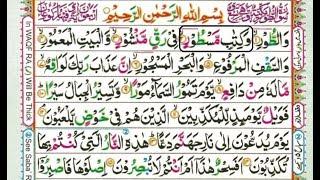 بِسْمِ اللهِ الرَّحْمٰنِ الرَّحِيْمِ
وَالطُّوْرِ ۙ وَكِتٰبٍ مَّسْطُوْرٍ ۙ فِيْ رَقٍّ مَّنْشُوْرٍ ۙ وَّالْبَيْتِ الْمَعْمُوْرِ ۙ
وَالسَّقْفِ الْمَرْفُوْعِ ۙ وَالْبَحْرِ الْمَسْجُوْرِ ۙ اِنَّ عَذَابَ رَبِّكَ لَوَاقِعٌ ۙ
مَّا لَهٗ مِنْ دَافِعٍ ۙ يَّوْمَ تَمُوْرُ السَّمَآءُ مَوْرًا ۙ وَّتَسِيْرُ الْجِبَالُ سَيْرًا ؕ
فَوَيْلٌ يَّوْمَئِذٍ لِّلْمُكَذِّبِيْنَ ۙ الَّذِيْنَ هُمْ فِيْ خَوْضٍ يَّلْعَبُوْنَ ۘ
يَوْمَ يُدَعُّوْنَ اِلٰى نَارِ جَهَنَّمَ دَعًّا ؕ هٰذِهِ النَّارُ الَّتِيْ كُنْتُمْ بِهَا
تُكَذِّبُوْنَ اَفَسِحْرٌ هٰذَاۤ اَمْ اَنْتُمْ لَا تُبْصِرُوْنَ ۚ اِصْلَوْهَا فَاصْبِرُوْۤا
In WAQF RA (ر) Will Be Thick
See Saba